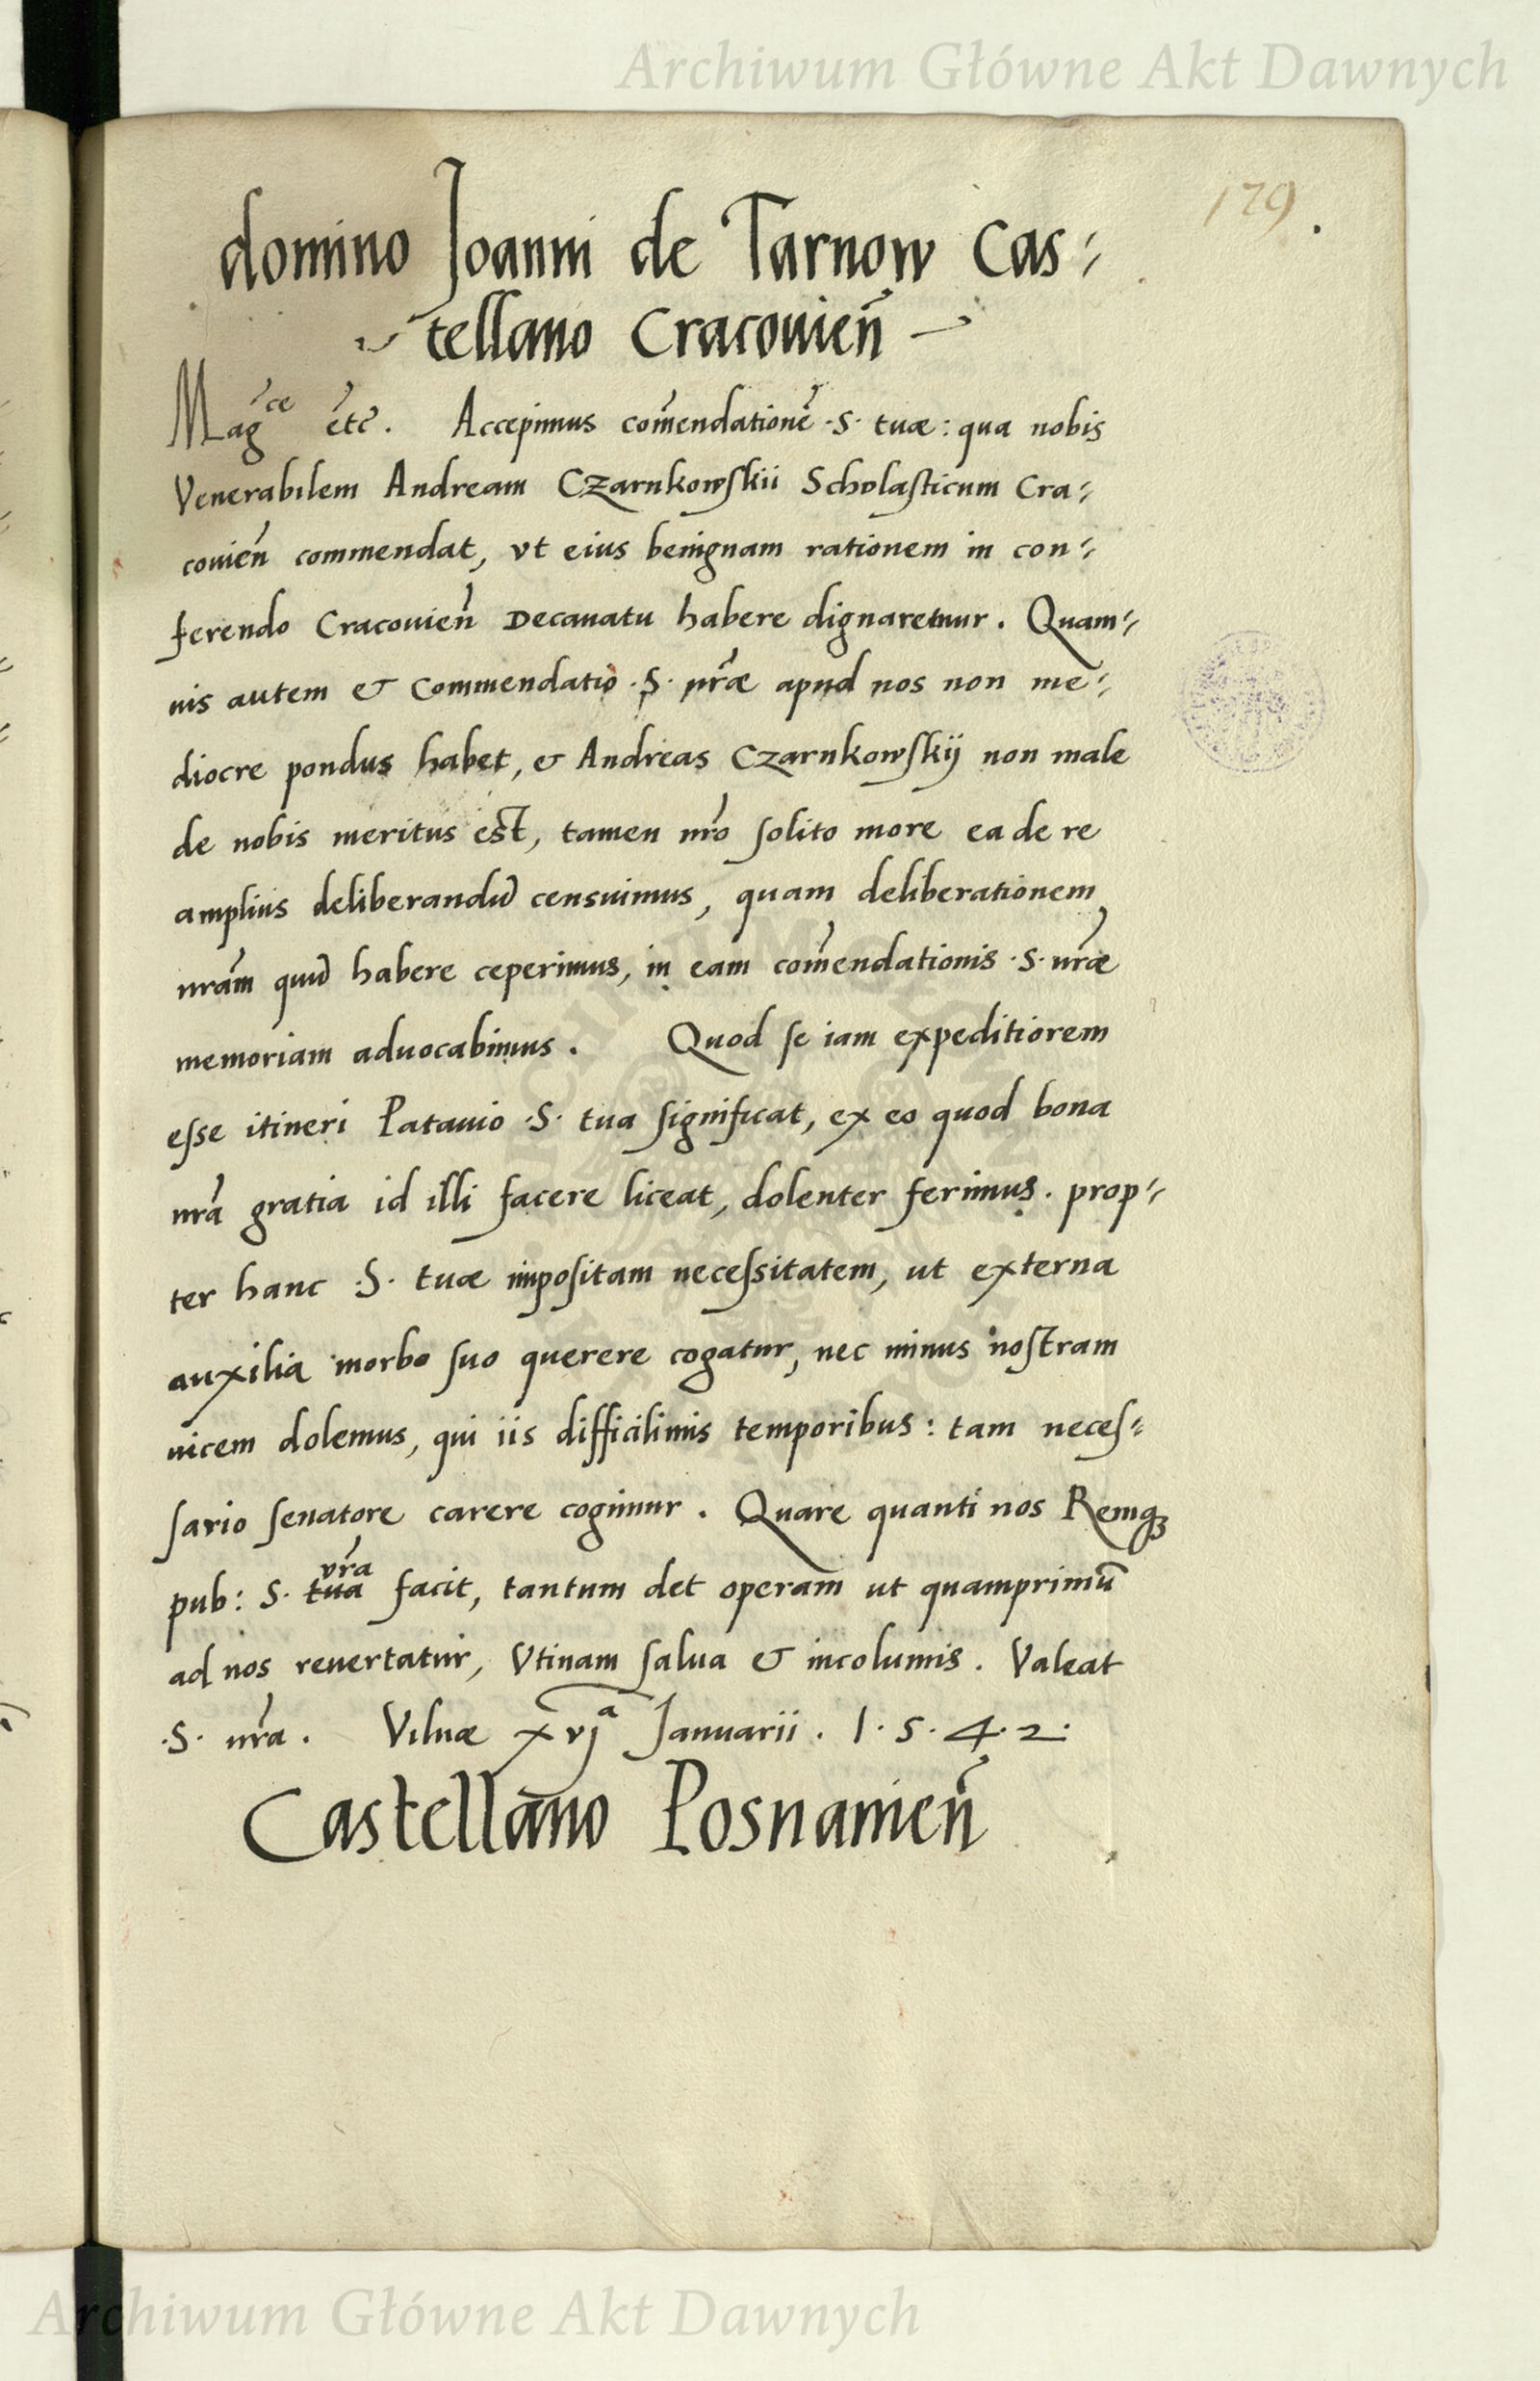 Archiwum Główne Akt Dawnych
179.
domino Joanni de Tarnow Cas⸗
tellano Cracouien̄
Mag̃ce etc̃. Accepimus com̃endationẽ .S. tuæ: qua nobis
Venerabilem Andream Czarnkowſkii Scholaſticum Cra⸗
couien̄ commendat, vt eius benignam rationem in con⸗
ferendo Cracouien̄ Decanatu habere dignaremur. Quam⸗
uis autem & Commendatio .S. vr̃æ apud nos non me⸗
diocre pondus habet, & Andreas Czarnkowſkij non male
de nobis meritus est, tamen nr̃o ſolito more ea de re
amplius deliberandũ censuimus, quam deliberationem
nrãm quũ habere ceperimus, in eam com̃endationis .S. vr̃æ
memoriam aduocabimus. Quod ſe iam expeditiorem
eſse itineri Patauio .S. tua ſignificat, ex eo quod bona
nr̃a gratia id illi facere liceat, dolenter ferimus. prop⸗
ter hanc .S. tuæ impoſitam neceſsitatem, ut externa
auxilia morbo ſuo querere cogatur, nec minus noſtram
uicem dolemus, qui iis difficilimis temporibus: tam neceſ⸗
ſario ſenatore carere cogimur. Quare quanti nos Remqꝫ
vr̃a
pub: S. tua facit, tantum det operam ut quamprimũ
ad nos reuertatur, Vtinam ſalua & incolumis. Valeat
.S. vr̃a. Vilnæ xvjᵃ Januarii. 1.5.4.2.
Castellano Posnanien̄
Archiwum Główne Akt Dawnych